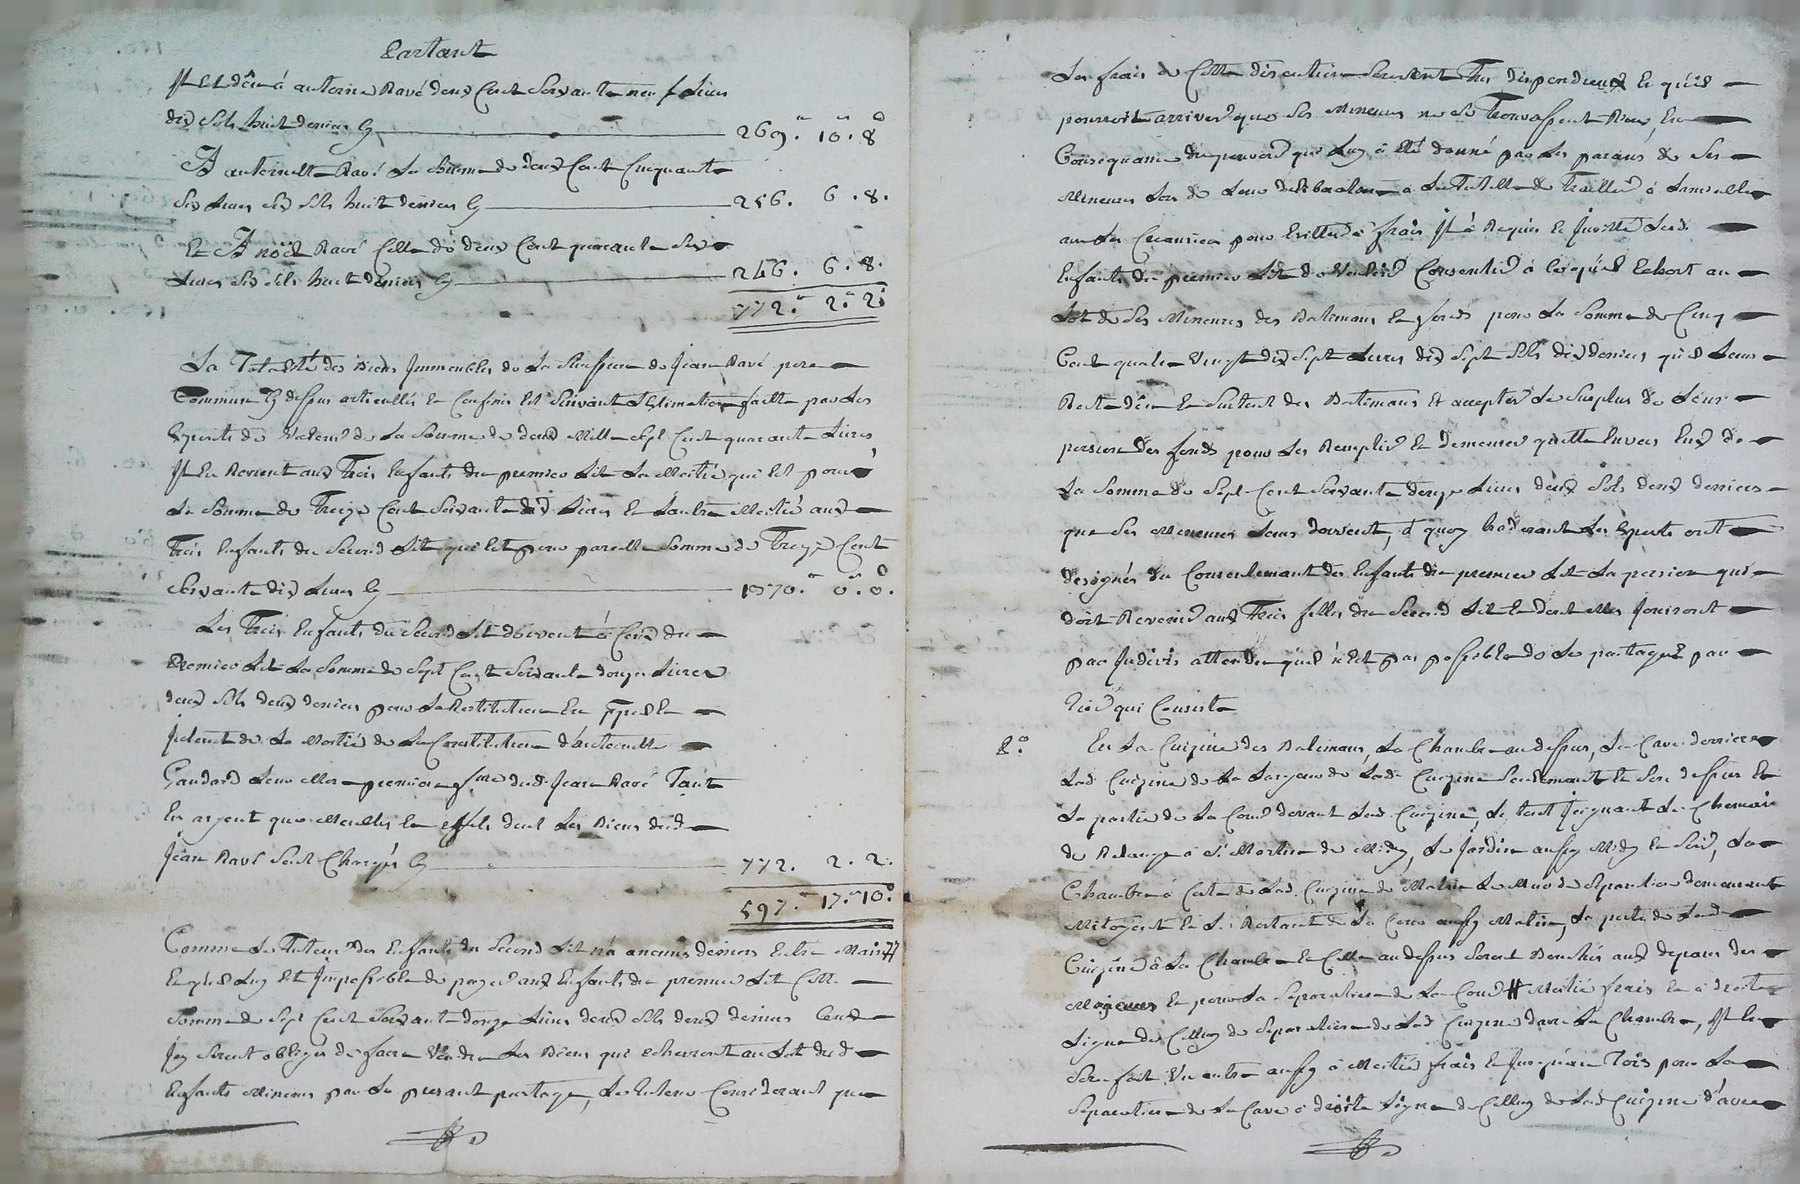 Partant
Il est dêu á antoine Ravé deux Cent Soixante neuf Livres
dix Sols huit deniers Cy 269.″ 10.″ 8
A antoinette Ravé La Somme de deux Cent Cinquante
Six Livres Six Sols huit deniers Cy 256. 6. 8.
Et A noël Ravé Celle de deux Cent quarante Six
Livres Six Sols huit deniers Cy 246. 6. 8.
772.″ 2.″ 2.
La Totalité des Biens Immeubles de La Succession de Jean Ravé pere
Commun Cy dessus articullés Et Confinés Est Suivant L'Estimation faitte par Les
Experts de Valeur de La Somme de deux Mille Sept Cent quarante Livres
Il En Revient aux Trois Enfants du premier Lit La Moitié qui Est pour
La Somme de Treize Cent Soixante dix Livres Et L'autre Moitié aux
Trois Enfants du Second Lit qui Est pour pareille Somme de Treize Cent
Soixante dix Livres Cy 1370.″ 0.″ 0.
Les Trois Enfants du Second Lit doivent á Ceux du
Premier Lit La Somme de Sept Cent Soixante douze Livres
deux Sols deux deniers pour La Restitution En ppal Et
Interret de La Moitié de La Constitution d'antoinette
Gaudard Leur Mere premiere fme dud. Jean Ravé Tant
En argent que Meubles Et effets dont Les Biens dud
Jean Ravé Sont Chargés Cy 772. 2. 2.
597.″ 17.″ 10.
Comme Le Tuteur des Enfants du Second Lit n'á aucuns deniers Entre Mains
Et qu'il Luy Est Impossible de payer aux Enfants du premier Lit Cette
Somme de Sept Cent Soixante douze Livres deux Sols deux deniers Ceux
Icy Seront obligés de faire Vendre Les Biens qui echerront au Lot dud
Enfants Mineurs par Le present partage, Le tuteur Considerant que
Les frais de Cette discution Seroient Tres dispendieux Et qu'il
pourroit arriver que Ses Mineurs ne Se Trouvassent Rien, En
Consequance du pouvoir qui Luy á Eté donné par Les parans de Ses
Mineurs Lors de Leur deliberation á La Tutelle de Traitter á L'amiable
avec Les Creanciers pour Eviter á frais Il á Requis Et Invitté Lesd.
Enfants du premier Lit de Vouloir Consentir á Ce qu'il Echoit au
Lot de Ses Mineures des Batimans Et fonds pour La Somme de Cinq
Cent quatre Vingt dix Sept Livres dix Sept Sols dix deniers qu'il Leurs
Reste dêu Et Surtout des Batimans Et accepter Le Surplus de Leur
portion des fonds pour Les Remplir Et demeurer quitte Envers Eux de
La Somme de Sept Cent Soixante douze Livres deux Sols deux deniers
que Ses Mineures Leurs doivent, á quoy Adherant Les Experts ont
designés du Consentemant des Enfants du premier Lit La portion qui
doit Revenir aux Trois filles du Second Lit Et dont elles Jouiront
par Indivis attendu qu'il n'Est pas possible de Le partager pour
qui Consiste
2.° En La Cuizine des Batimans, La Chambre au dessus, La Cave derriere
Lad. Cuizine de La Largeur de Lad. Cuizine Seulemant Et Sera dessus Et
La partie de La Cour devant Lad. Cuizine, Le tout Joignant Le Chemin
de Relange á St. Martin de Midy, Le Jardin aussy Midy Et Soir, La
Chambre á Coté de Lad. Cuizine de Matin Le Mur de Separation demeurant
Mitoyent Et Le Restant de La Cour aussy Matin, La porte de Lad.
Cuizine á La Chambre Et Celle au dessus Seront Bouchés aux depans des
Mineures Et pour La Separation de La Cour Moitié frais Et á droite
Ligne de Celluy de Separation de Lad. Cuizine d'avec La Chambre, Il En
Sera fait Un autre aussy á Moitié frais Et Jusqu'au Tois pour La
Separation de La Cave á droite Ligne de Celluy de Lad. Cuizine d'avec